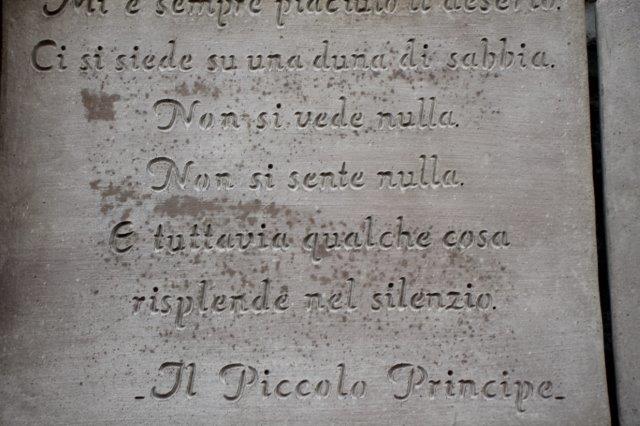 Mi è sempre piaciuto il deserto.
Ci si siede su una duna di sabbia.
Non si vede nulla.
Non si sente nulla.
E tuttavia qualche cosa
risplende nel silenzio.
-Il Piccolo Principe-